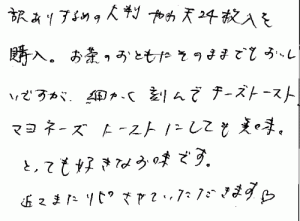 訳ありするめの大判やわ天24枚入を
購入。お茶のおともにそのままでもおいし
いですが、細かく刻んでチーズトースト、
マヨネーズトーストにしても美味。
とっても好きなお味です。
近々またリピさせていただきます♡